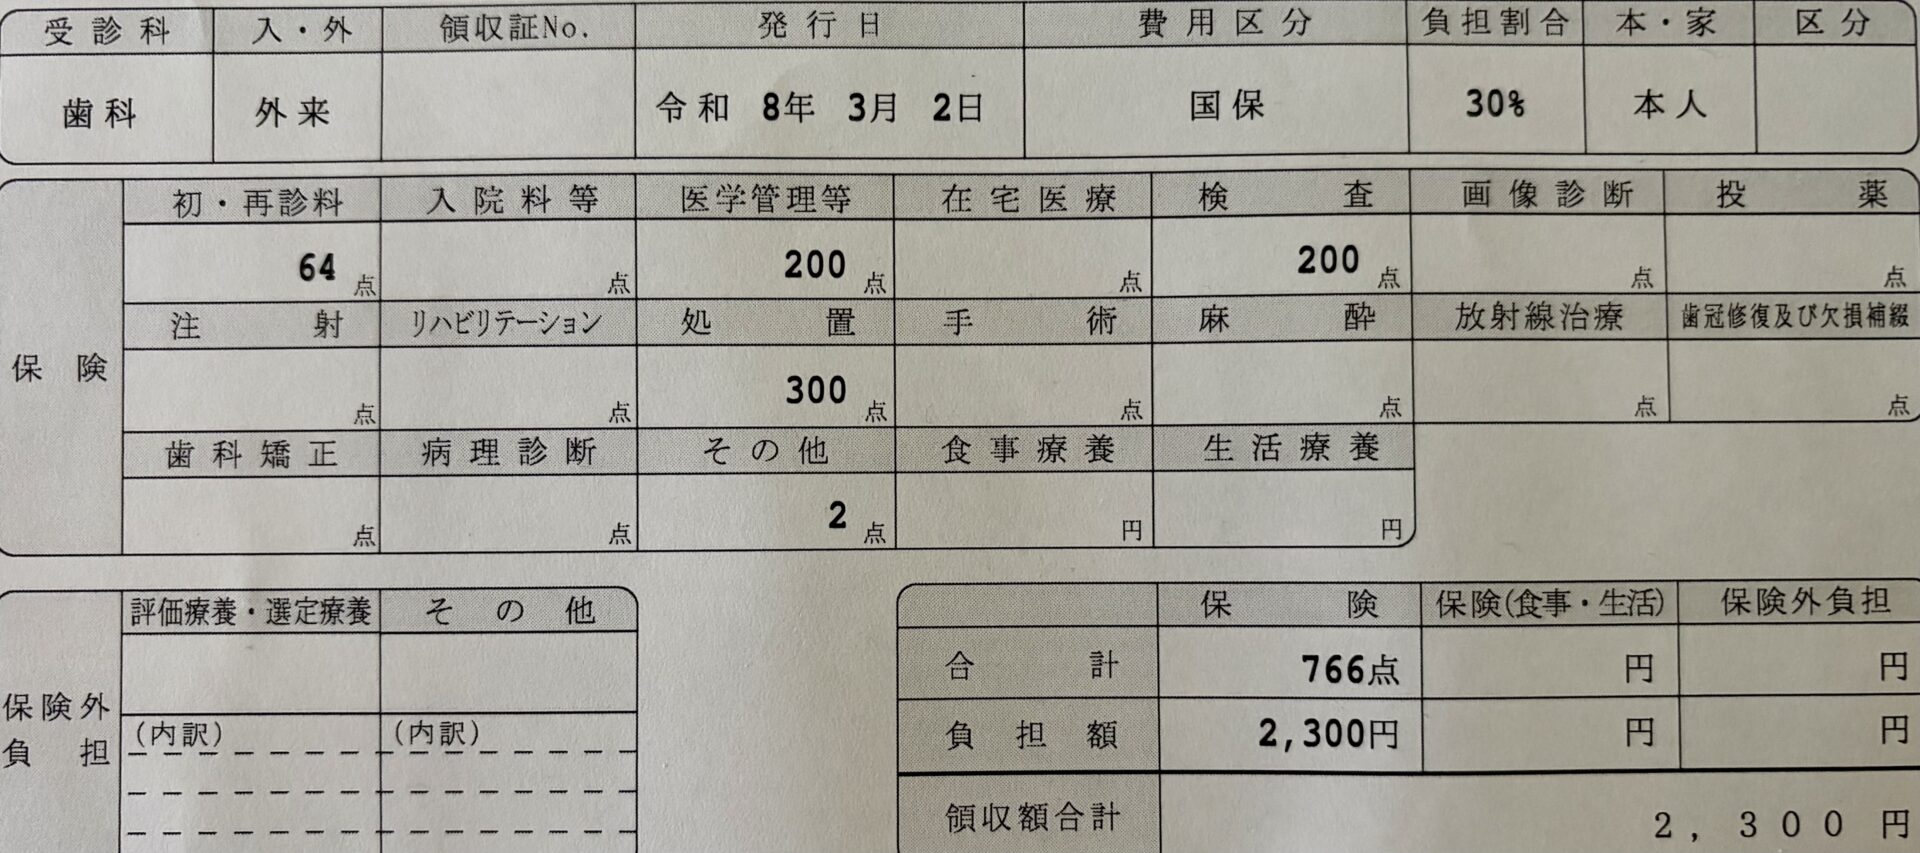 受診科 入・外 領収証No. 発行日 費用区分 負担割合 本・家 区分
歯科 外来 令和 8年 3月 2日 国保 30% 本人
初・再診料 入院料等 医学管理等 在宅医療 検査 画像診断 投薬
64点 点 200点 点 200点 点 点
注射 リハビリテーション 処置 手術 麻酔 放射線治療 歯冠修復及び欠損補綴
保険
点 点 300点 点 点 点 点
歯科矯正 病理診断 その他 食事療養 生活療養
点 点 2点 円 円
評価療養・選定療養 その他
保険外負担
(内訳) (内訳)
保険 保険(食事・生活) 保険外負担
合計 766点 円 円
負担額 2,300円 円 円
領収額合計 2,300 円